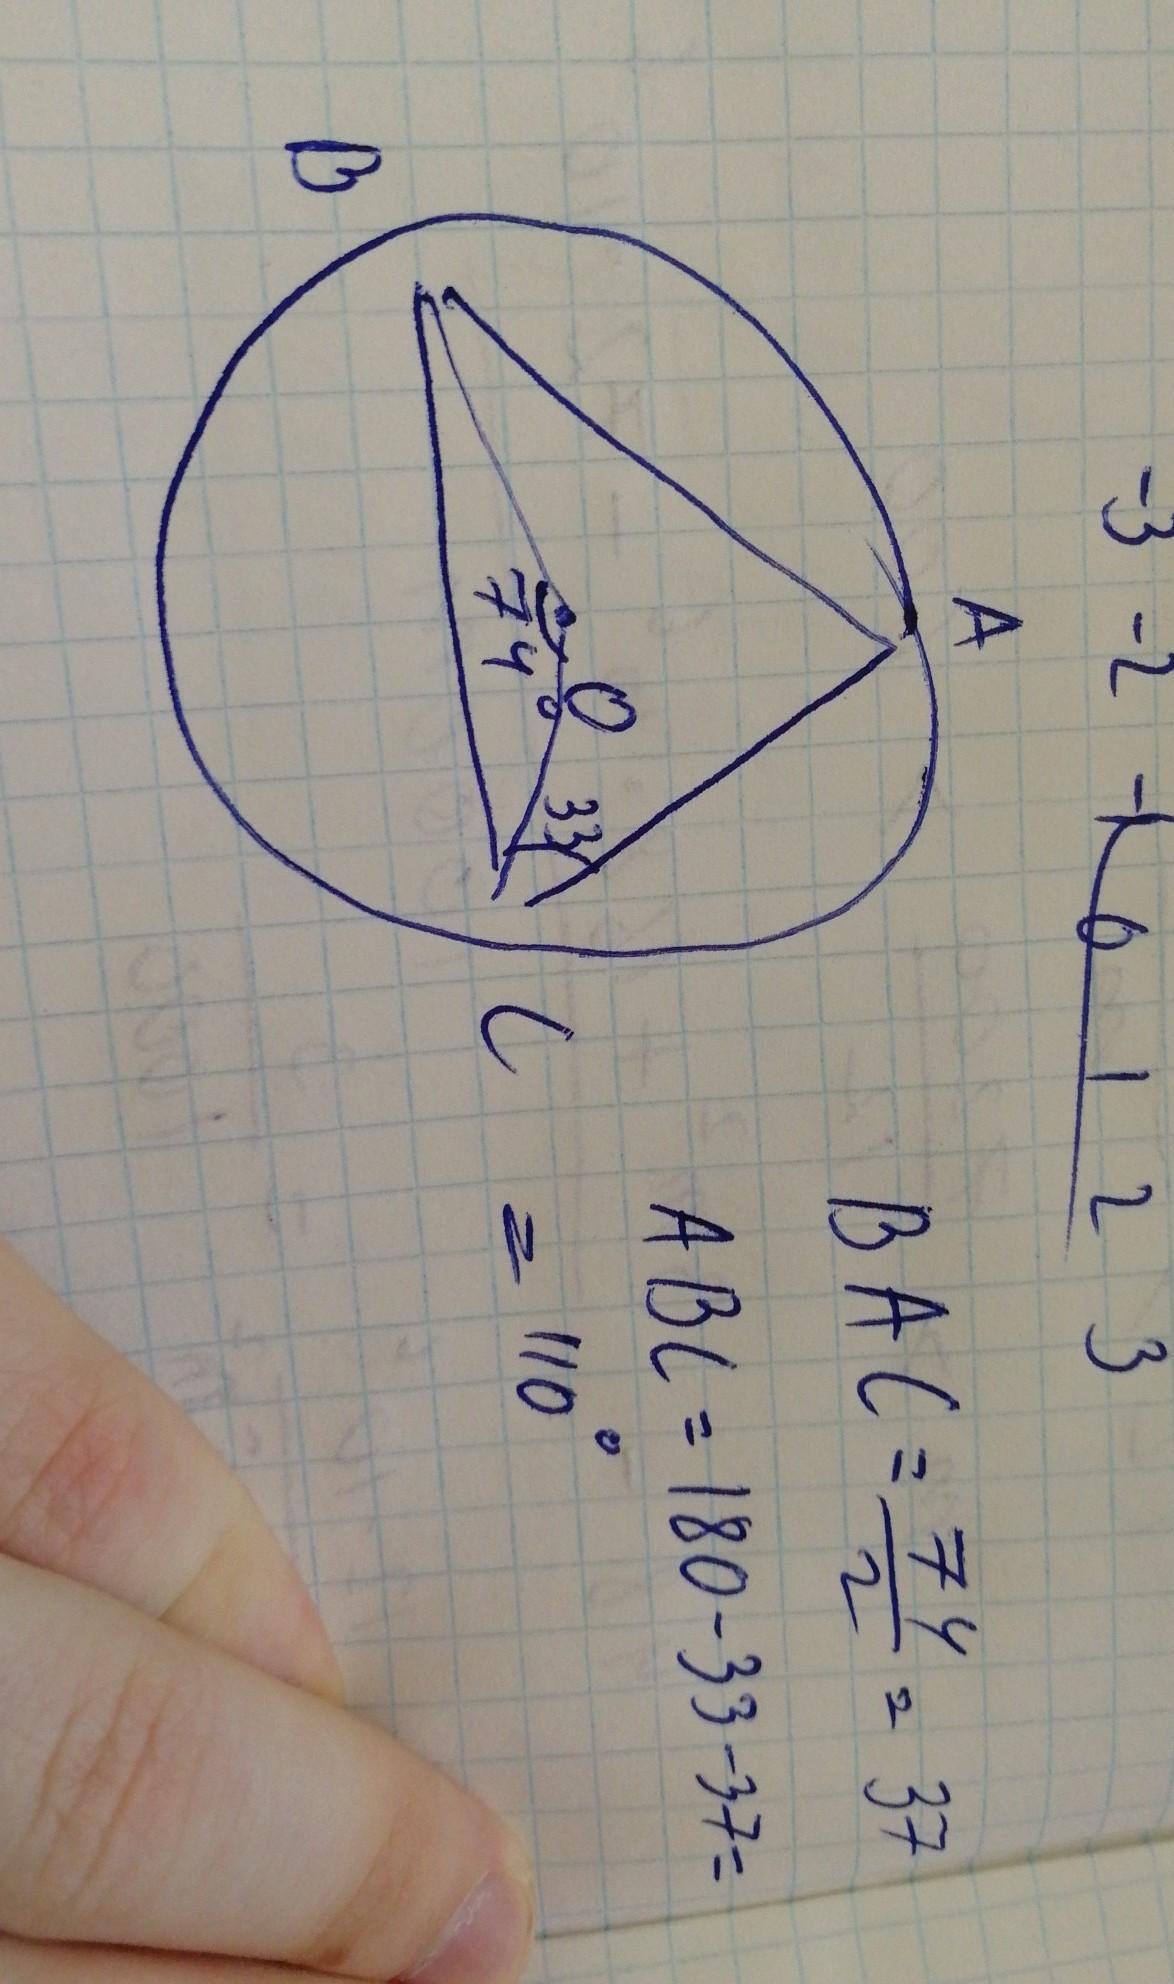 -3 -2 -1 0 1 2 3
A
B
O
74°
33
C
BAC = 74/2 = 37
ABC = 180 - 33 - 37 =
= 110°